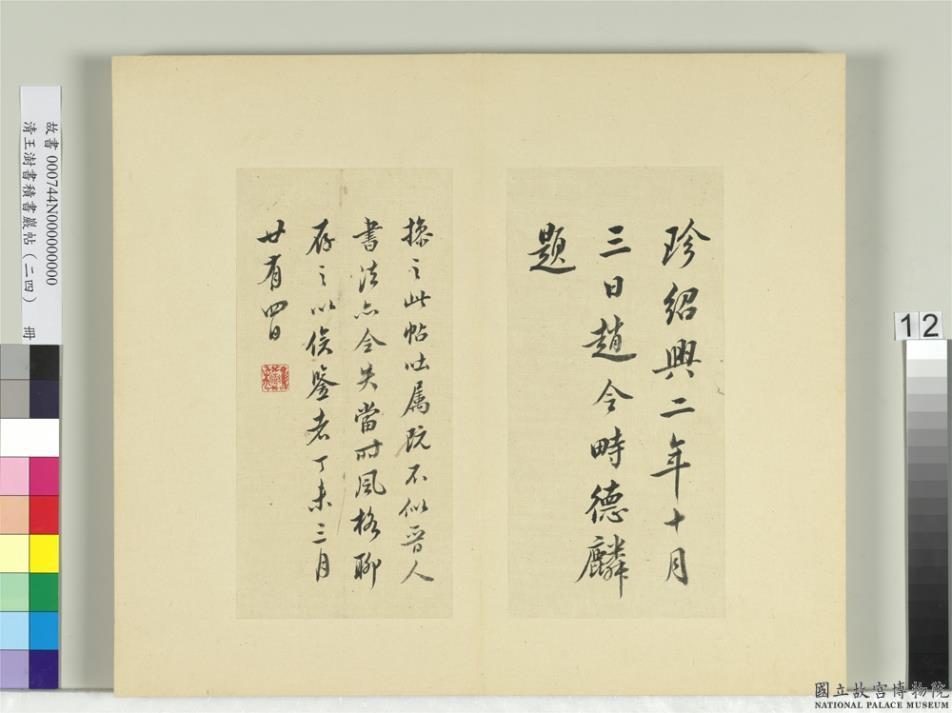 珍紹興二年十月
三日趙令畤德麟
題
操之此帖吐属既不似晉人
書法亦全失當時風格聊
存之以俟鑒者丁未三月
廿有四日
故書 000744N000000000
清王澍書積書巖帖(二四) 冊
12
國立故宮博物院
NATIONAL PALACE MUSEUM